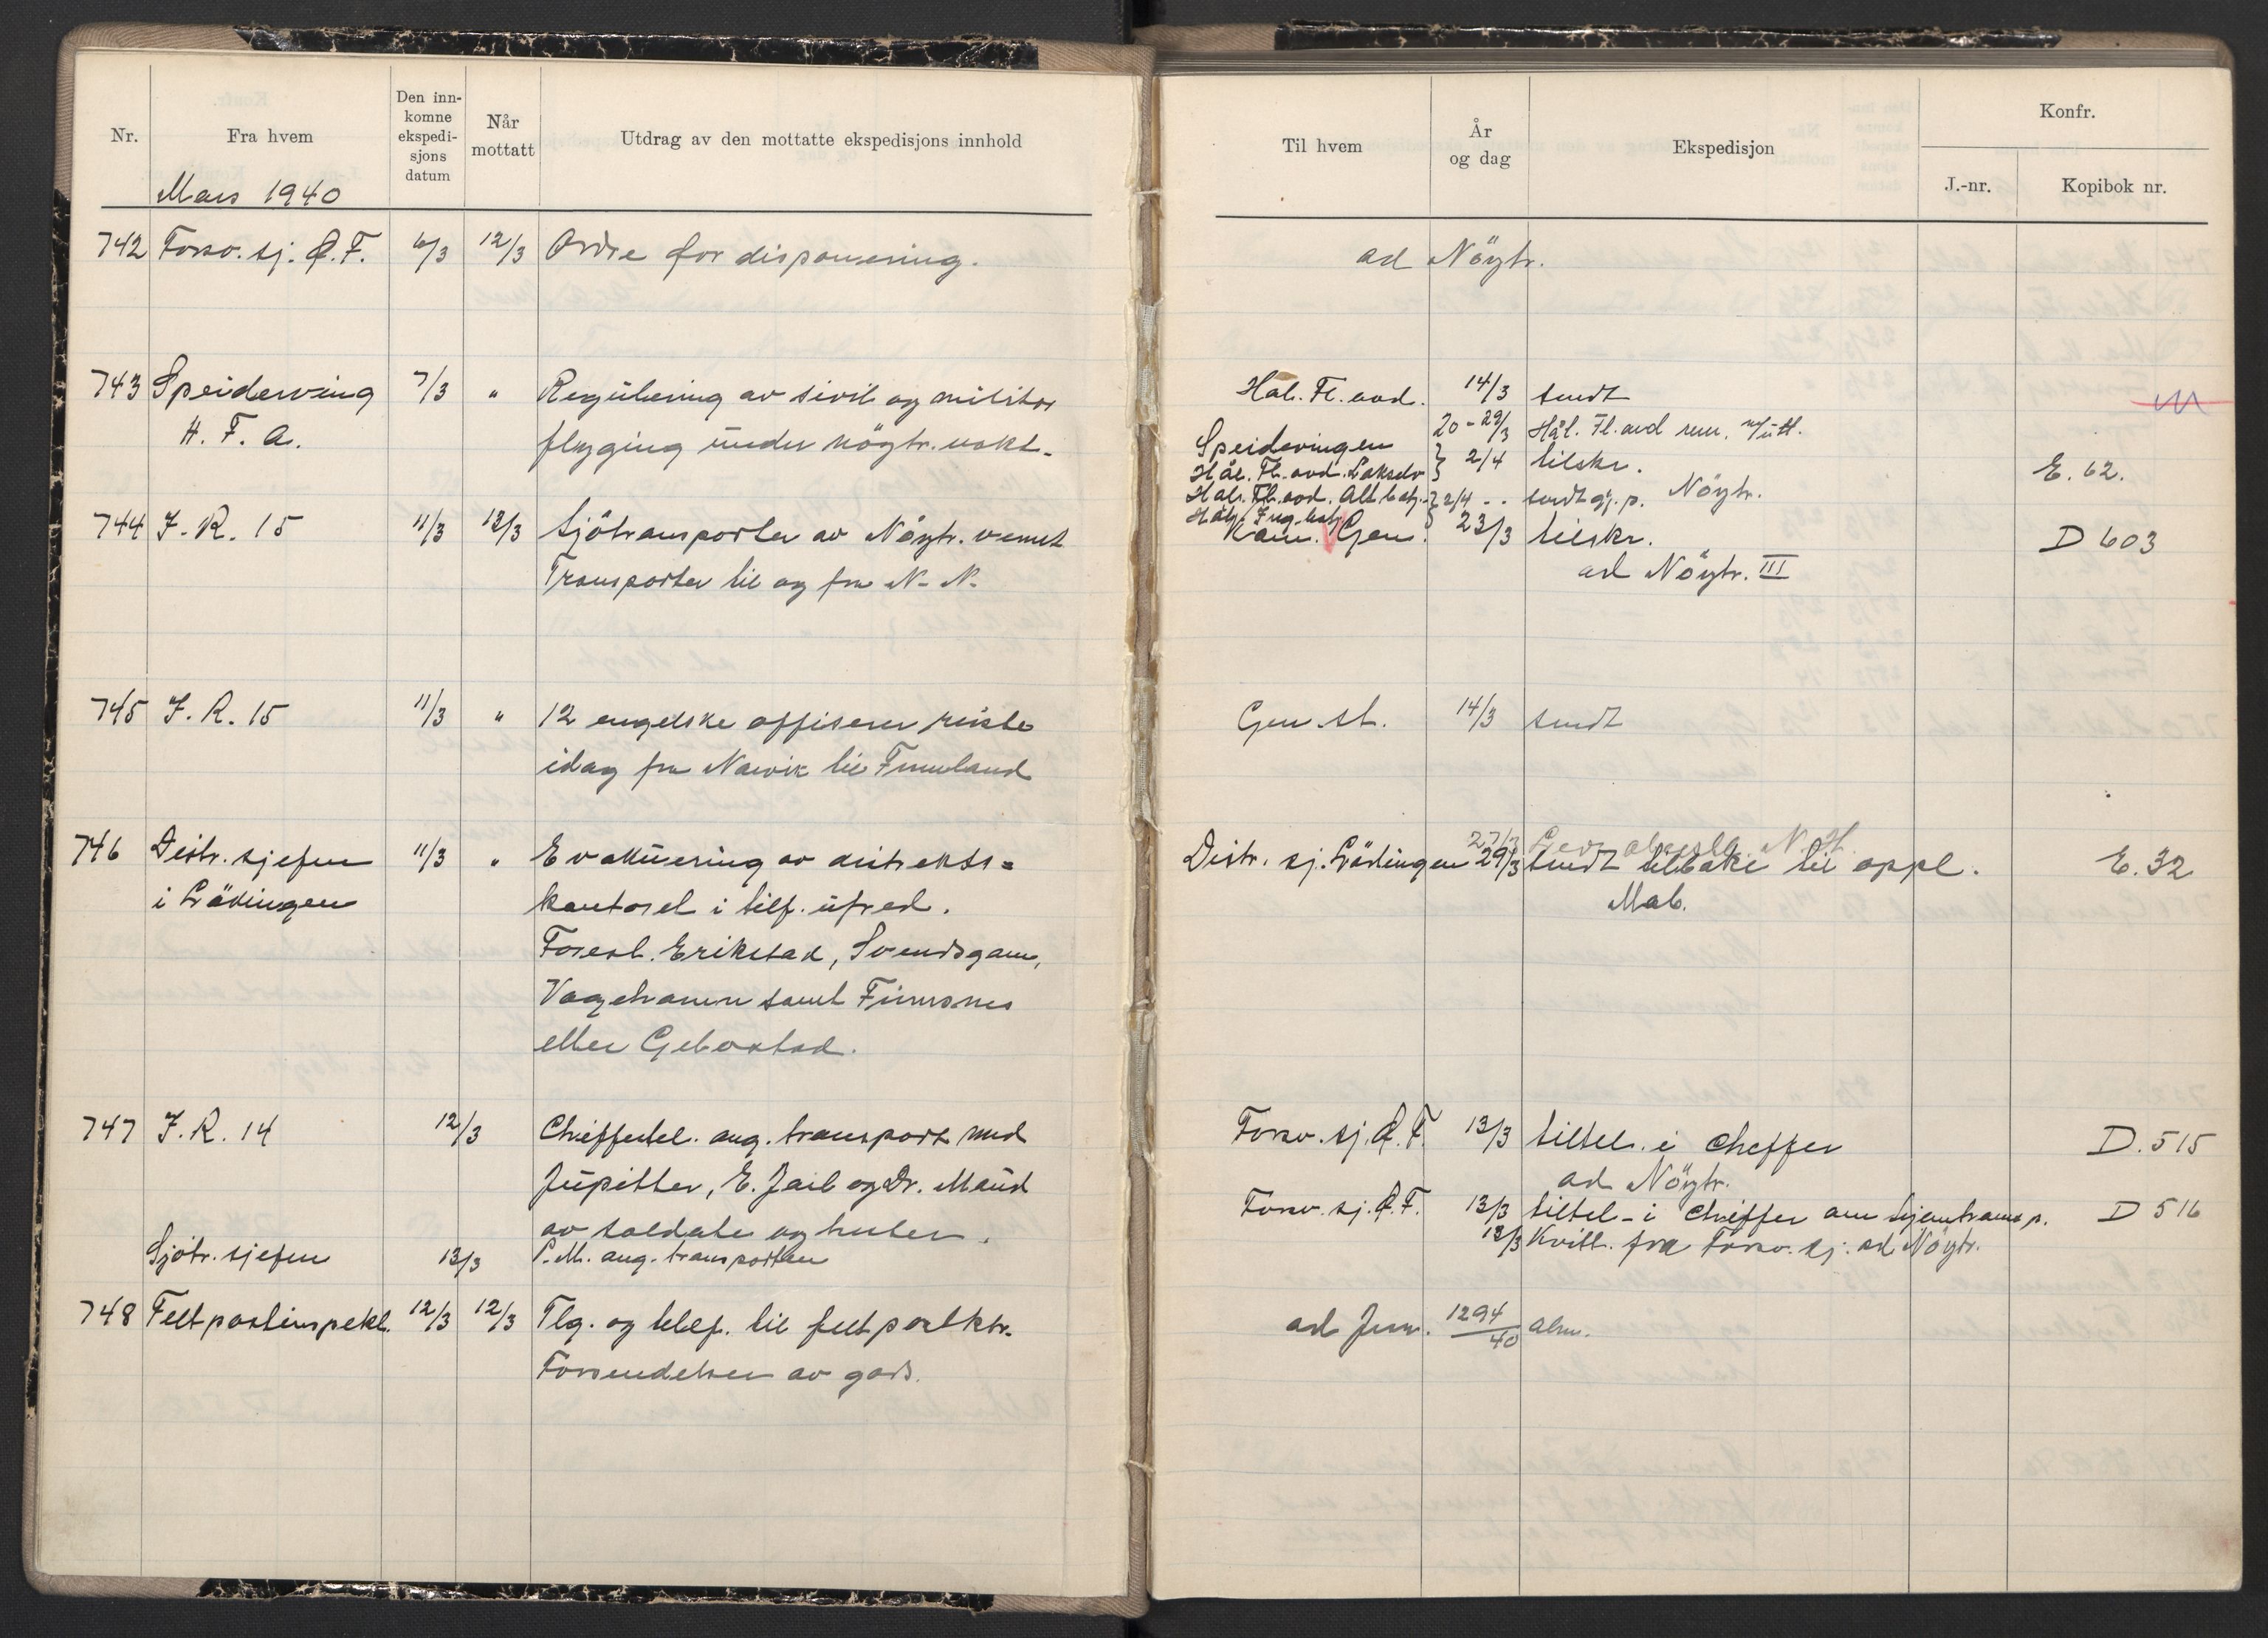 Nr.
Fra hvem
Den inn-
komne
ekspedi-
sjons
datum
Når
mottatt
Utdrag av den mottatte ekspedisjons innhold
Mars 1940
742 Forsv. sj. Ø.F. 6/3 12/3 Ordre for disponering.
743 Speiderving 7/3 " Regulering av sivil og militær
H. F. A. flyging under nöytr. vakt.
744 I. R. 15 11/3 12/3 Sjötransporter av Nöytr. vernet
Transporter til og fra N. N.
745 I. R. 15 11/3 " 12 engelske offiserer reiste
idag fra Narvik til Finnland
746 Distr. sjefen 11/3 " Evakuering av distrikts=
i Lödingen kontoret i tilf. ufred.
Foresl. Erikstad, Svendsgam,
Vagehamn samt Finnsnes
eller Gibostad.
747 I. R. 14 12/3 Chiffertel. ang. transport med
Jupitter, E. Jarl og Dr. Maud
av soldater og hester.
Sjötr. sjefen 13/3 P.M. ang. transporten
748 Feltpostinspekt. 12/3 12/3 Tlg. og telef. til feltpostktr.
Forsendelser av gods.
Til hvem
År
og dag
Ekspedisjon
Konfr.
J.-nr.
Kopibok nr.
ad Nöytr.
Hål. Fl. avd. 14/3 sendt
20-29/3 Hål. Fl. avd m/utt.
Speidervingen
Hål. Fl. avd. Lakselv } 2/4 tilskr. E. 62.
Hål. Fl. avd. Alt. batj. } 2/4 -- sendt gj. p. Nöytr.
Hålg. Ing. batj
Kom. Gen. 23/3 tilskr. D 603
ad Nöytr. III
Gen. st. 14/3 sendt
27/3 N. H.
Distr. sj. Lödingen 29/3 sendt tilbake til oppl. E. 32
Mob.
Forsv. sj. Ø. F. 13/3 tiltel. i Cheffer D. 515
ad Nöytr.
Forsv. sj. Ø.F. 13/3 tiltel. i Chiffer om hjemtransp. D 516
13/3 Kvitt. fra Forsv. sj. ad Nöytr.
ad Jnr. 1294/40 alm.